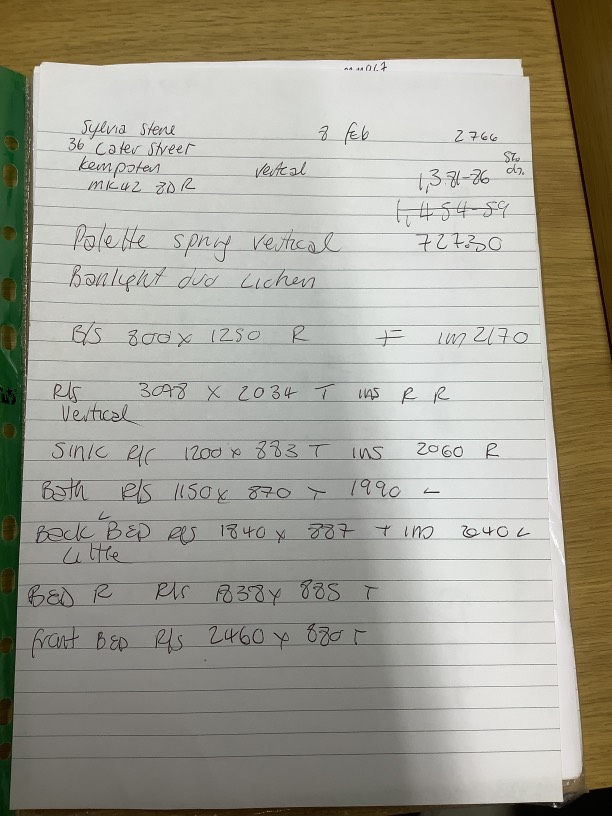 Sylvia Stene 8 Feb 2766
36 Cater Street
Kempston vertical 1,381-86 5% dis.
MK42 8DR
1,454-59
Palette spring vertical 727.30
Banlight duo Lichen
B/S 800 x 1250 R F ins 2170
R/S 3098 x 2034 T ins R R
Vertical
Sink R/S 1200 x 883 T ins 2060 R
Bath R/S 1150 x 870 T 1990 L
Back L BED R/S 1840 x 887 T ins 2040 L
Little
BED R R/S 1838 x 885 T
front BED R/S 2460 x 880 T